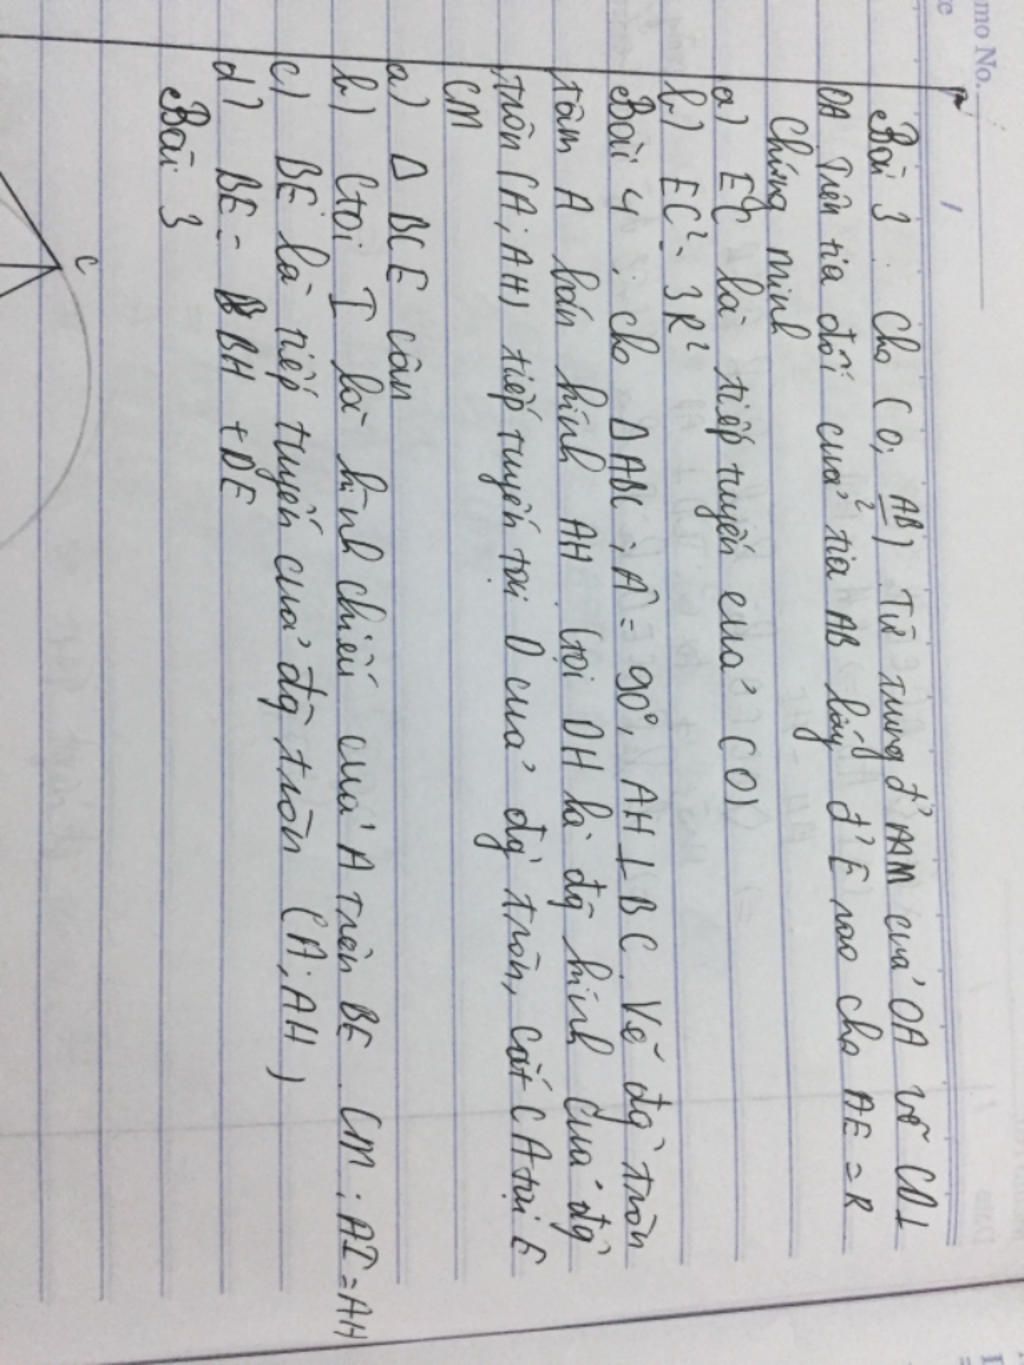 mo No.
te
1
Bài 3. Cho (O; AB/2) Từ trung đ' M của OA vẽ CD⊥
OA. Trên tia đối của tia AB lấy đ' E sao cho AE = R
Chứng minh
a) EC là tiếp tuyến của (O)
b) EC² = 3R²
Bài 4. cho Δ ABC; Â = 90°, AH ⊥ BC. Vẽ đg tròn
tâm A bán kính AH Gọi DH là đg kính của đg
tròn (A; AH) tiếp tuyến tại D của đg tròn, cắt CA tại E
CM
a) Δ BCE cân
b) Gọi I là hình chiếu của A trên BE. CM: AI = AH
c) BE là tiếp tuyến của đg tròn (A; AH)
d) BE = BH + DE
Bài 3
C